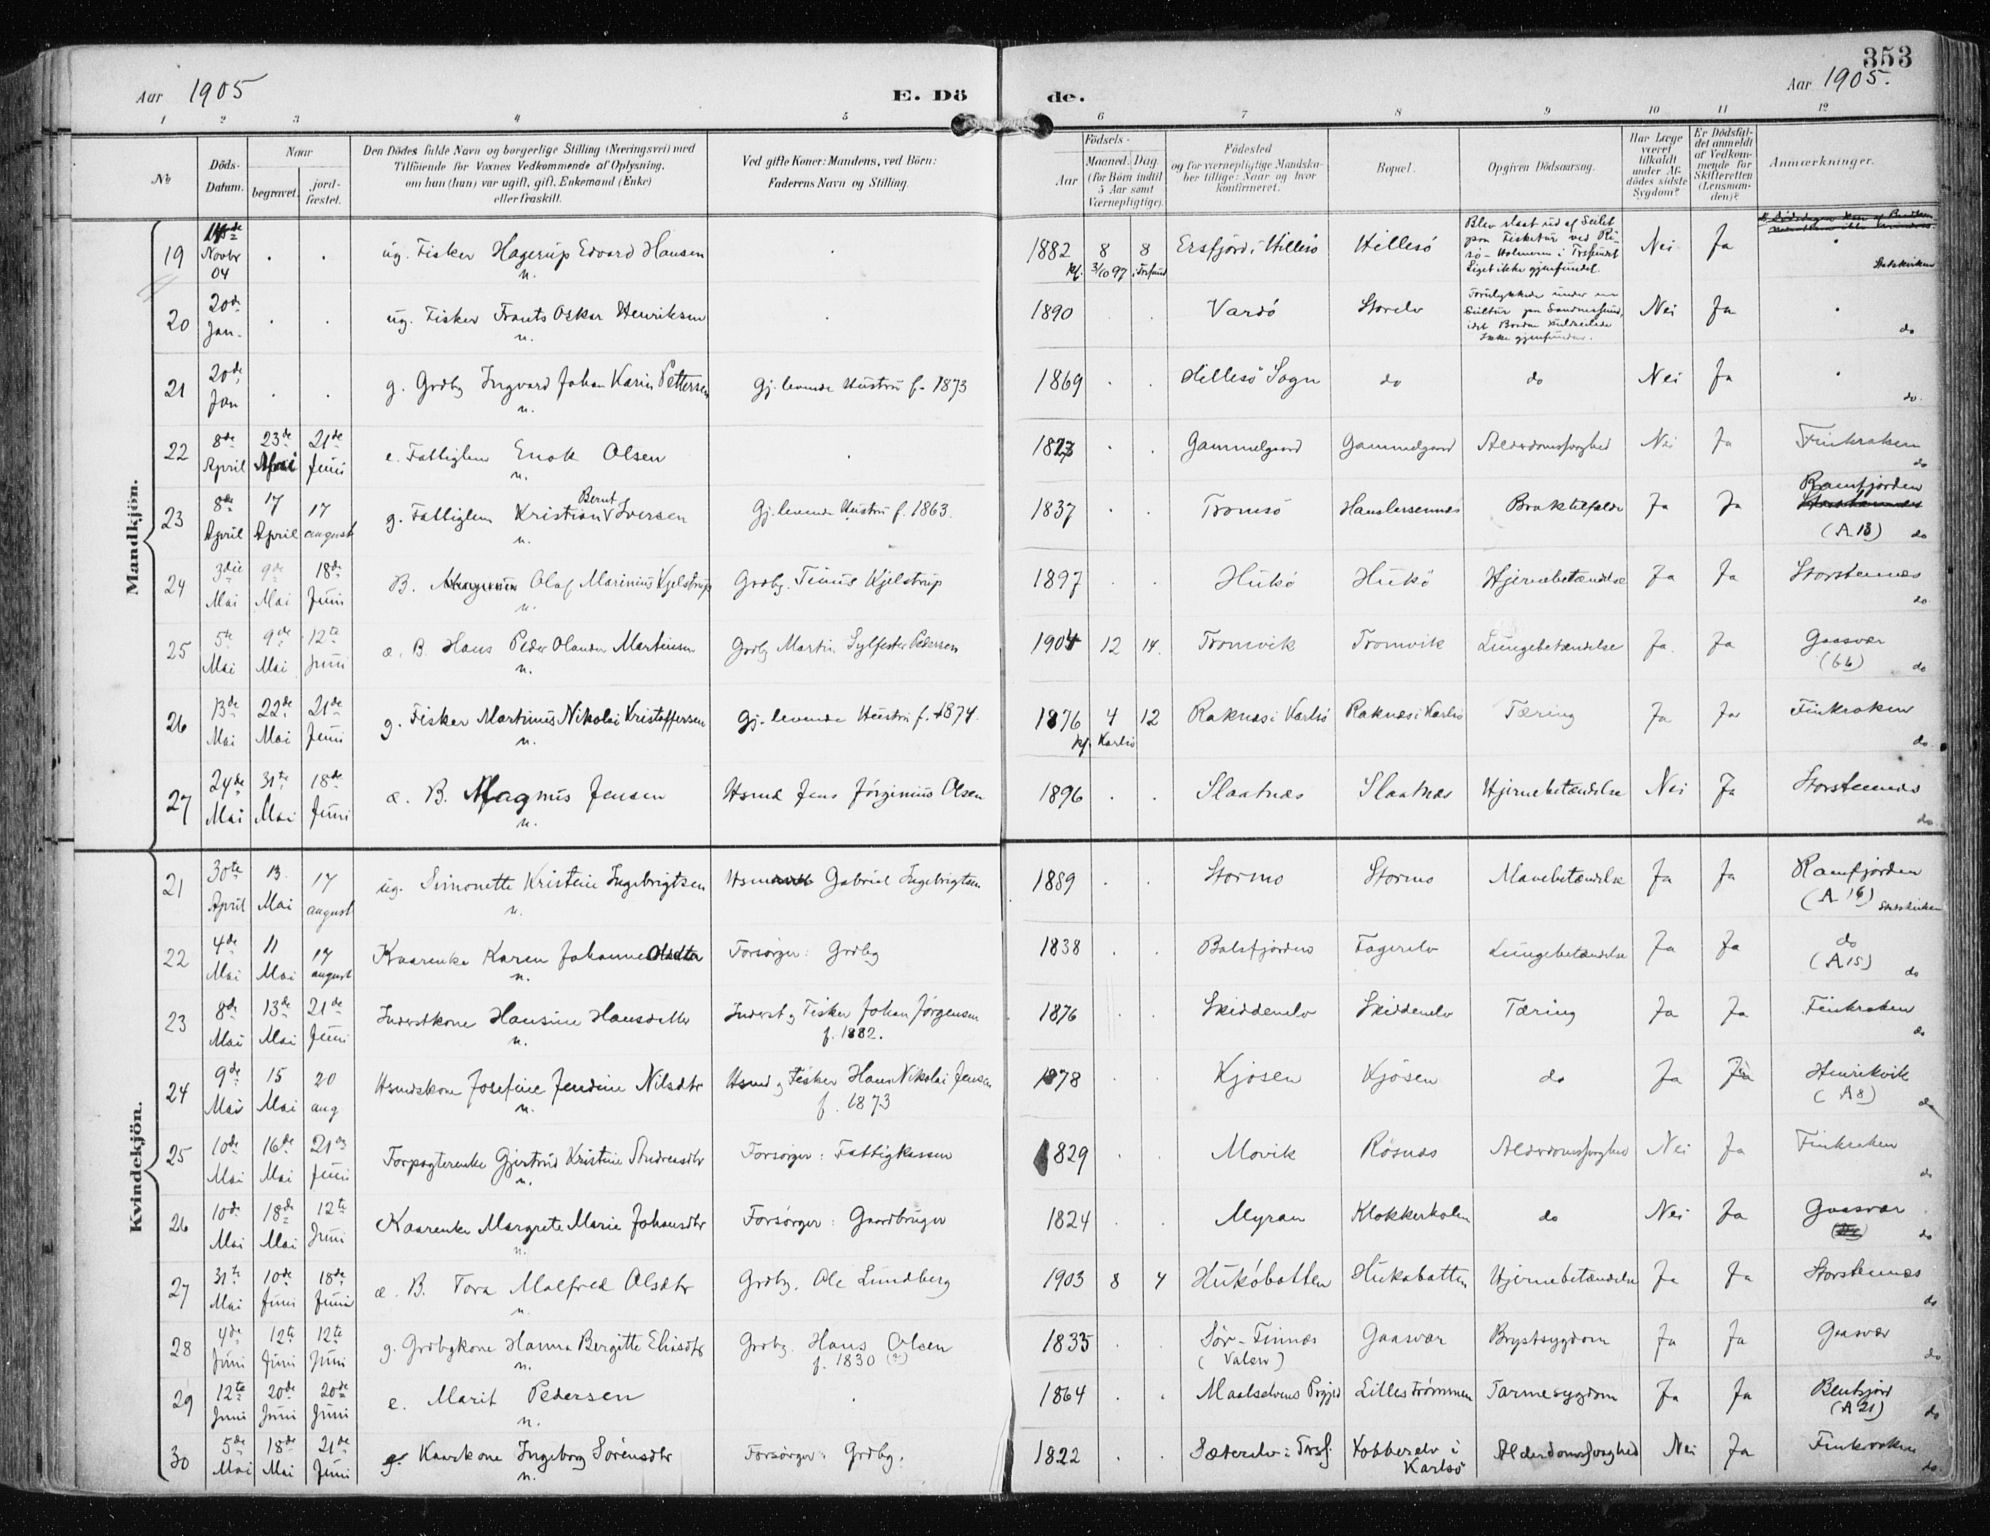 353
Aar 1905
E. Dö
de.
Aar 1905.
1 2 3 4 5 6 7 8 9 10 11 12
№
Döds-Datum.
Naar
begravet.
jordfæstet.
Den Dödes fulde Navn og borgerlige Stilling (Næringsvei) med
Tilföiende for Voxnes Vedkommende af Oplysning,
om han (hun) var ugift, gift, Enkemand (Enke)
eller fraskilt.
Ved gifte Koner: Mandens, ved Börn:
Faderens Navn og Stilling.
Födsels-
Aar
Maaned. Dag
(for Börn indtil
5 Aar samt
Værnepligtige).
Födested
og for værnepligtige Mandskaber tillige: Naar og hvor
konfirmeret.
Bopæl.
Opgiven Dödsaarsag.
Har Læge
været
tilkaldt
under Afdödes sidste
Sygdom?
Er Dödsfaldet anmeldt
af Vedkommende for
Skifteretten
(Lensmanden)?
Anmærkninger.
Mandkjön.
19 Novbr 04 . . ug. Fisker Hagerup Edvard Hansen n. . 1882 8 8 Ersfjord i Hillesö Hillesö Blev slaat ud af Seilet paa Fisketur ved Holmenn i Liget ikke gjenfundet. Nei Ja
kf. 3/10 97
20 20de Jan. . . ug. Fisker Frants Oskar Henriksen n. . 1890 . . Vardö Storelv Forulykkede under en Ikke gjenfunden. Nei Ja do
21 20de Jan . . g. Grdbg Ingvard Johan Karin Pettersen n. Gj. levende Hustru f. 1873 1869 . . Hillesö Sogn do do Nei Ja do.
22 8de April 23de 21de Juni e. Fattiglem Enok Olsen n. . 1823 . . Gammelgaard Gammelgaard Alderdomssvaghed Nei Ja Finkroken do
23 8de April 17 April 17 august g. Fattiglem Kristian Bernt Iversen n. Gj. levende Hustru f. 1863. 1837 . . Tromsö Hanslarsennæs Bruktilfælde Ja Ja Ramfjorden (A 13) do
24 3die Mai 9de Mai 18de Juni B. Olaf Marinius Kjelstrup n. Grdbg. Tinus Kjelstrup 1897 . . Hukö Hukö Hjernebetændelse Ja Ja Storstennæs do.
25 5te Mai 9de Mai 12te Juni æ. B. Hans Peder Olander Martinsen n. Grdbg Martin Sylfester Pedersen 1904 12 14. Tromvik Tromvik Lungebetændelse Ja. Ja Gaasvær (66) do
26 13de Mai 22de Mai 21de Juni g. Fisker Martinus Nikolai Kristoffersen n. Gj. levende Hustru f. 1874. 1876 4 12 Raknæs i Karlsö Raknæs i Karlsö Tæring Ja Ja Finkroken do.
kf. Karlsö
27 24de Mai 31te Mai 18de Juni æ. B. Magnus Jensen n. Hsmd Jens Jörginius Olsen 1896 . . Slaatnæs Slaatnæs Hjernebetændelse Nei Ja Storstennæs do.
Kvindekjön.
21 30te April 13. Mai 17 august ug. Simonette Kristine Ingebrigtsen n. Gabriel Ingebrigtsen 1889 . . Stormo Stormo Mavebetændelse Ja Ja Ramfjorden (A 16)
22 4de Mai 11 Mai 17 august Kaarenke Karen Johanne Olsdtr n. Forsörger: Grdbg 1838 . . Balsfjorden Fagerelv Lungebetændelse Ja Ja do (A 15) do
23 8de Mai 13de Mai 21de Juni Inderstkone Hansine Hansdatter n. Inderst og Fisker Johan Jörgensen f. 1882. 1876 . . Skiddenelv Skiddenelv Tæring Ja Ja Finkroken do
24 9de Mai 15 Mai 20 aug Hsmdskone Josefine Jendine Nilsdtr n. Hsmd og Fisker Hans Nikolai Jensen f. 1873 1878 . . Kjosen Kjosen do Ja Ja Henrikvik (A 8) do
25 10de Mai 16de Mai 21de Juni Forpagterenke Gjertrud Kristine Andreasdtr n. Forsörger: Fattigkassen 1829 . . Movik Rösnæs Alderdomssvaghed Nei Ja Finkroken do
26 10de Mai 18de Mai 12te Juni Kaarenke Margrete Marie Johansdtr n. Forsörger: Gaardbruger 1824 . . Myran Klokkerholm do Nei Ja Gaasvær do
27 31te Mai 10de Juni 18de Juni æ. B. Tora Malfred Olsdtr n. Grdbg. Ole Lundberg 1903 8 4 Huköbotten Hukabotten Hjernebetændelse Ja Ja Storstennæs do
28 4de Juni 12te Juni 12te Juni g. Grdbgkone Hanna Bergitte Eliasdtr n. Grdbg. Hans Olsen f. 1830 (?) 1835 . . Sör-Finnæs (Valen) Gaasvær Brystsygdom Ja Ja Gaasvær do
29 12te Juni 20de Juni 20de Juni e. Marit Pedersen n. . 1864 . . Maalselvens Prgjd Lilleströmmen Tarmesygdom Ja Ja Bentsjord (A 21) do
30 5de Mai 18de Mai 21de Juni g. Kaarkone Ingeborg Sörensdtr n. Forsörger: Grdbg. 1822 . . Sæterelv i Trsf. Kobberelv i Karlsö Alderdomssvaghed Nei Ja Finkroken do.